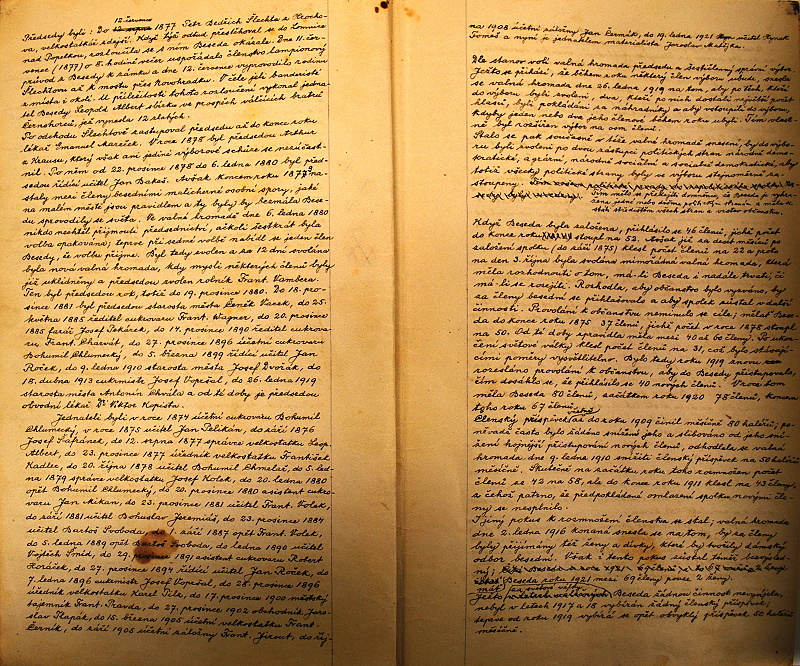 12. července
Předsedy byli: Do 1877 Petr Bedřich Šlechta z Krocho-
va, velkostatkář zdejší. Když týž odtud přestěhoval se do Lomnice
nad Popelkou, rozloučila se s ním Beseda okázale. Dne 11. čer-
vence (1877) o 8. hodině večer uspořádalo členstvo lampionový
průvod z Besedy k zámku a dne 12. července vyprovodilo rodinu
Šlechtovu až k mostu přes Novohrádku. V čele jeli banderisté
z města i okolí. U příležitosti tohoto rozloučení vykonal jedna-
tel Besedy Leopold Albert sbírku ve prospěch válčících bratrů
Černohorců, jež vynesla 12 zlatých.
Po odchodu Šlechtově zastupoval předsedu až do konce roku
lékař Emanuel Mareček. V roce 1878 byl předsedou Arthur
z Krausu, který však ani jediné výborové schůze se nezúčast-
nil. Po něm od 22. prosince 1878 do 6. ledna 1880 byl před-
sedou řídící učitel Jan Bakeš. Avšak koncem roku 1879 na-
staly mezi členy besedními malicherné osobní spory, jaké
na malém městě jsou pravidlem a ty byly by bezmála Bese-
du sprovodily se světa. Ve valné hromadě dne 6. ledna 1880
nikdo nechtěl přijmouti předsednictví, ačkoli šestkrát byla
volba opakována; teprve při sedmé volbě nabídl se jeden člen
Besedy, že volbu přijme. Byl tedy zvolen a za 12 dní svolána
byla nová valná hromada, kdy mysli některých členů byly
již uklidněny a předsedou zvolen rolník Frant. Vambera.
Ten byl předsedou rok, totiž do 19. prosince 1880. Do 18. pro-
since 1881 byl předsedou starosta města Čeněk Vacek, do 25.
května 1885 ředitel cukrovaru Frant. Wagner, do 20. prosince
1885 farář Josef Pekárek, do 14. prosince 1890 ředitel cukrova-
ru Frant. Charvát, do 27. prosince 1896 účetní cukrovaru
Bohumil Chlumecký, do 5. března 1899 řídící učitel Jan
Roček, do 9. ledna 1910 starosta města Josef Dvořák, do
18. dubna 1913 cukrmistr Josef Vopršal, do 26. ledna 1919
starosta města Antonín Chvála a od té doby je předsedou
obvodní lékař Dr Viktor Kopista.
Jednateli byli v roce 1874 účetní cukrovaru Bohumil
Chlumecký, v roce 1875 učitel Jan Pelikán, do září 1876
Josef Šafránek, do 12. srpna 1877 správce velkostatku Leop.
Albert, do 23. prosince 1877 úředník velkostatku František
Kadlec, do 20. října 1878 učitel Bohumil Chmelař, do 5. led-
na 1879 správce velkostatku Josef Kolek, do 20. ledna 1880
opět Bohumil Chlumecký, do 20. prosince 1880 asistent cukro-
varu Jan Mikan, do 23. prosince 1881 učitel Frant. Volek,
do září 1881 učitel Bohuslav Jeremiáš, do 23. prosince 1884
učitel Bartoš Svoboda, do září 1887 opět Frant. Volek,
do 5. ledna 1889 opět Bartoš Svoboda, do ledna 1890 učitel
Vojtěch Šmíd, do 29. 1891 asistent cukrovaru Robert
Horáček, do 27. prosince 1894 řídící učitel Jan Roček, do
7. ledna 1896 cukrmistr Josef Vopršal, do 28. prosince 1896
úředník velkostatku Karel Píla, do 17. prosince 1900 městský
tajemník Frant. Pravda, do 27. prosince 1902 obchodník Jaro-
slav Klapák, do 15. března 1905 účetní velkostatku Frant.
Černík, do září 1905 účetní záložny Frant. Jirout, do říj-
na 1908 účetní záložny Jan Čermák, do 19. ledna 1921 učitel Hynek
Tomáš a nyní je jednatelem materialista Jaroslav Matějka.
Dle stanov volí valná hromada předsedu a šestičlenný správní výbor.
Ježto se přihází, že během roku některý člen výboru ubude, snesla
se valná hromada dne 26. ledna 1919 na tom, aby po těch, kteří
do výboru byli zvoleni, dva, kteří po nich dostali největší počet
hlasů, byli pokládáni za náhradníky a aby vstoupili do výboru,
kdyby jeden nebo dva jeho členové během roku ubyli. Tím vlast-
ně byl rozšířen výbor na osm členů.
Stalo se pak současně v téže valné hromadě snesení, by do výbo-
ru byli zvoleni po dvou zástupci politických stran národně demo-
kratické, agrární, národně sociální a sociálně demokratické, aby
totiž všecky politické strany byly ve výboru stejnoměrně za-
stoupeny.
Tím mělo se předejíti domněnce, že Beseda je vyhra-
zena jedné nebo dvěma politickým stranám, a měla se
státi střediskem všech stran a vrstev občanstva.
Když Beseda byla založena, přihlásilo se 46 členů, jichž počet
do konce roku stoupl na 52. Avšak již za deset měsíců po
založení spolku (do září 1875) klesl počet členů na 22 a proto
na den 3. října byla svolána mimořádná valná hromada, která
měla rozhodnouti o tom, má-li Beseda i nadále trvati, či
má-li se rozejíti. Rozhodla, aby občanstvo bylo vyzváno, by
za členy besední se přihlašovalo a aby spolek zůstal v další
činnosti. Provolání k občanstvu neminulo se cíle; měla Bese-
da do konce roku 1875 37 členů, jichž počet v roce 1876 stoupl
na 50. Od té doby zpravidla měla mezi 40 až 60 členy. Po ukon-
čení světové války klesl počet členů na 31, což bylo stávají-
cími poměry vysvětlitelno. Bylo tedy roku 1919 znovu
rozesláno provolání k občanstvu, aby do Besedy přistupovalo,
čímž dosáhlo se, že přihlásilo se 40 nových členů. V roce tom
měla Beseda 80 členů, začátkem roku 1920 78 členů, koncem
toho roku 67 členů.
Členský příspěvek až do roku 1909 činil měsíčně 80 haléřů; po-
něvadž často bylo žádáno snížení jeho a slibováno od jeho sní-
žení hojnější přistupování nových členů, odhodlala se valná
hromada dne 9. ledna 1910 snížiti členský příspěvek na 50 haléřů
měsíčně. Skutečně na začátku roku toho rozmnožen počet
členů se 42 na 58, ale do konce roku 1911 klesl na 43 členy,
z čehož patrno, že předpokládané omlazení spolku novými čle-
ny se nesplnilo.
I jiný pokus k rozmnožení členstva se stal; valná hromada
dne 2. ledna 1916 konaná snesla se na tom, by za členy
byly přijímány též ženy a dívky, které by tvořily dámský
odbor besední. Však i tento pokus zůstal téměř bezvýsled-
ný;
Beseda roku 1921 mezi 69 členy pouze 2 ženy.
za světové války
Ježto Beseda žádnou činnost nevyvíjela,
nebyl v letech 1917 a 18 vybírán žádný členský příspěvek,
teprve od roku 1919 vybírá se opět obvyklý příspěvek 50 haléřů
měsíčně.